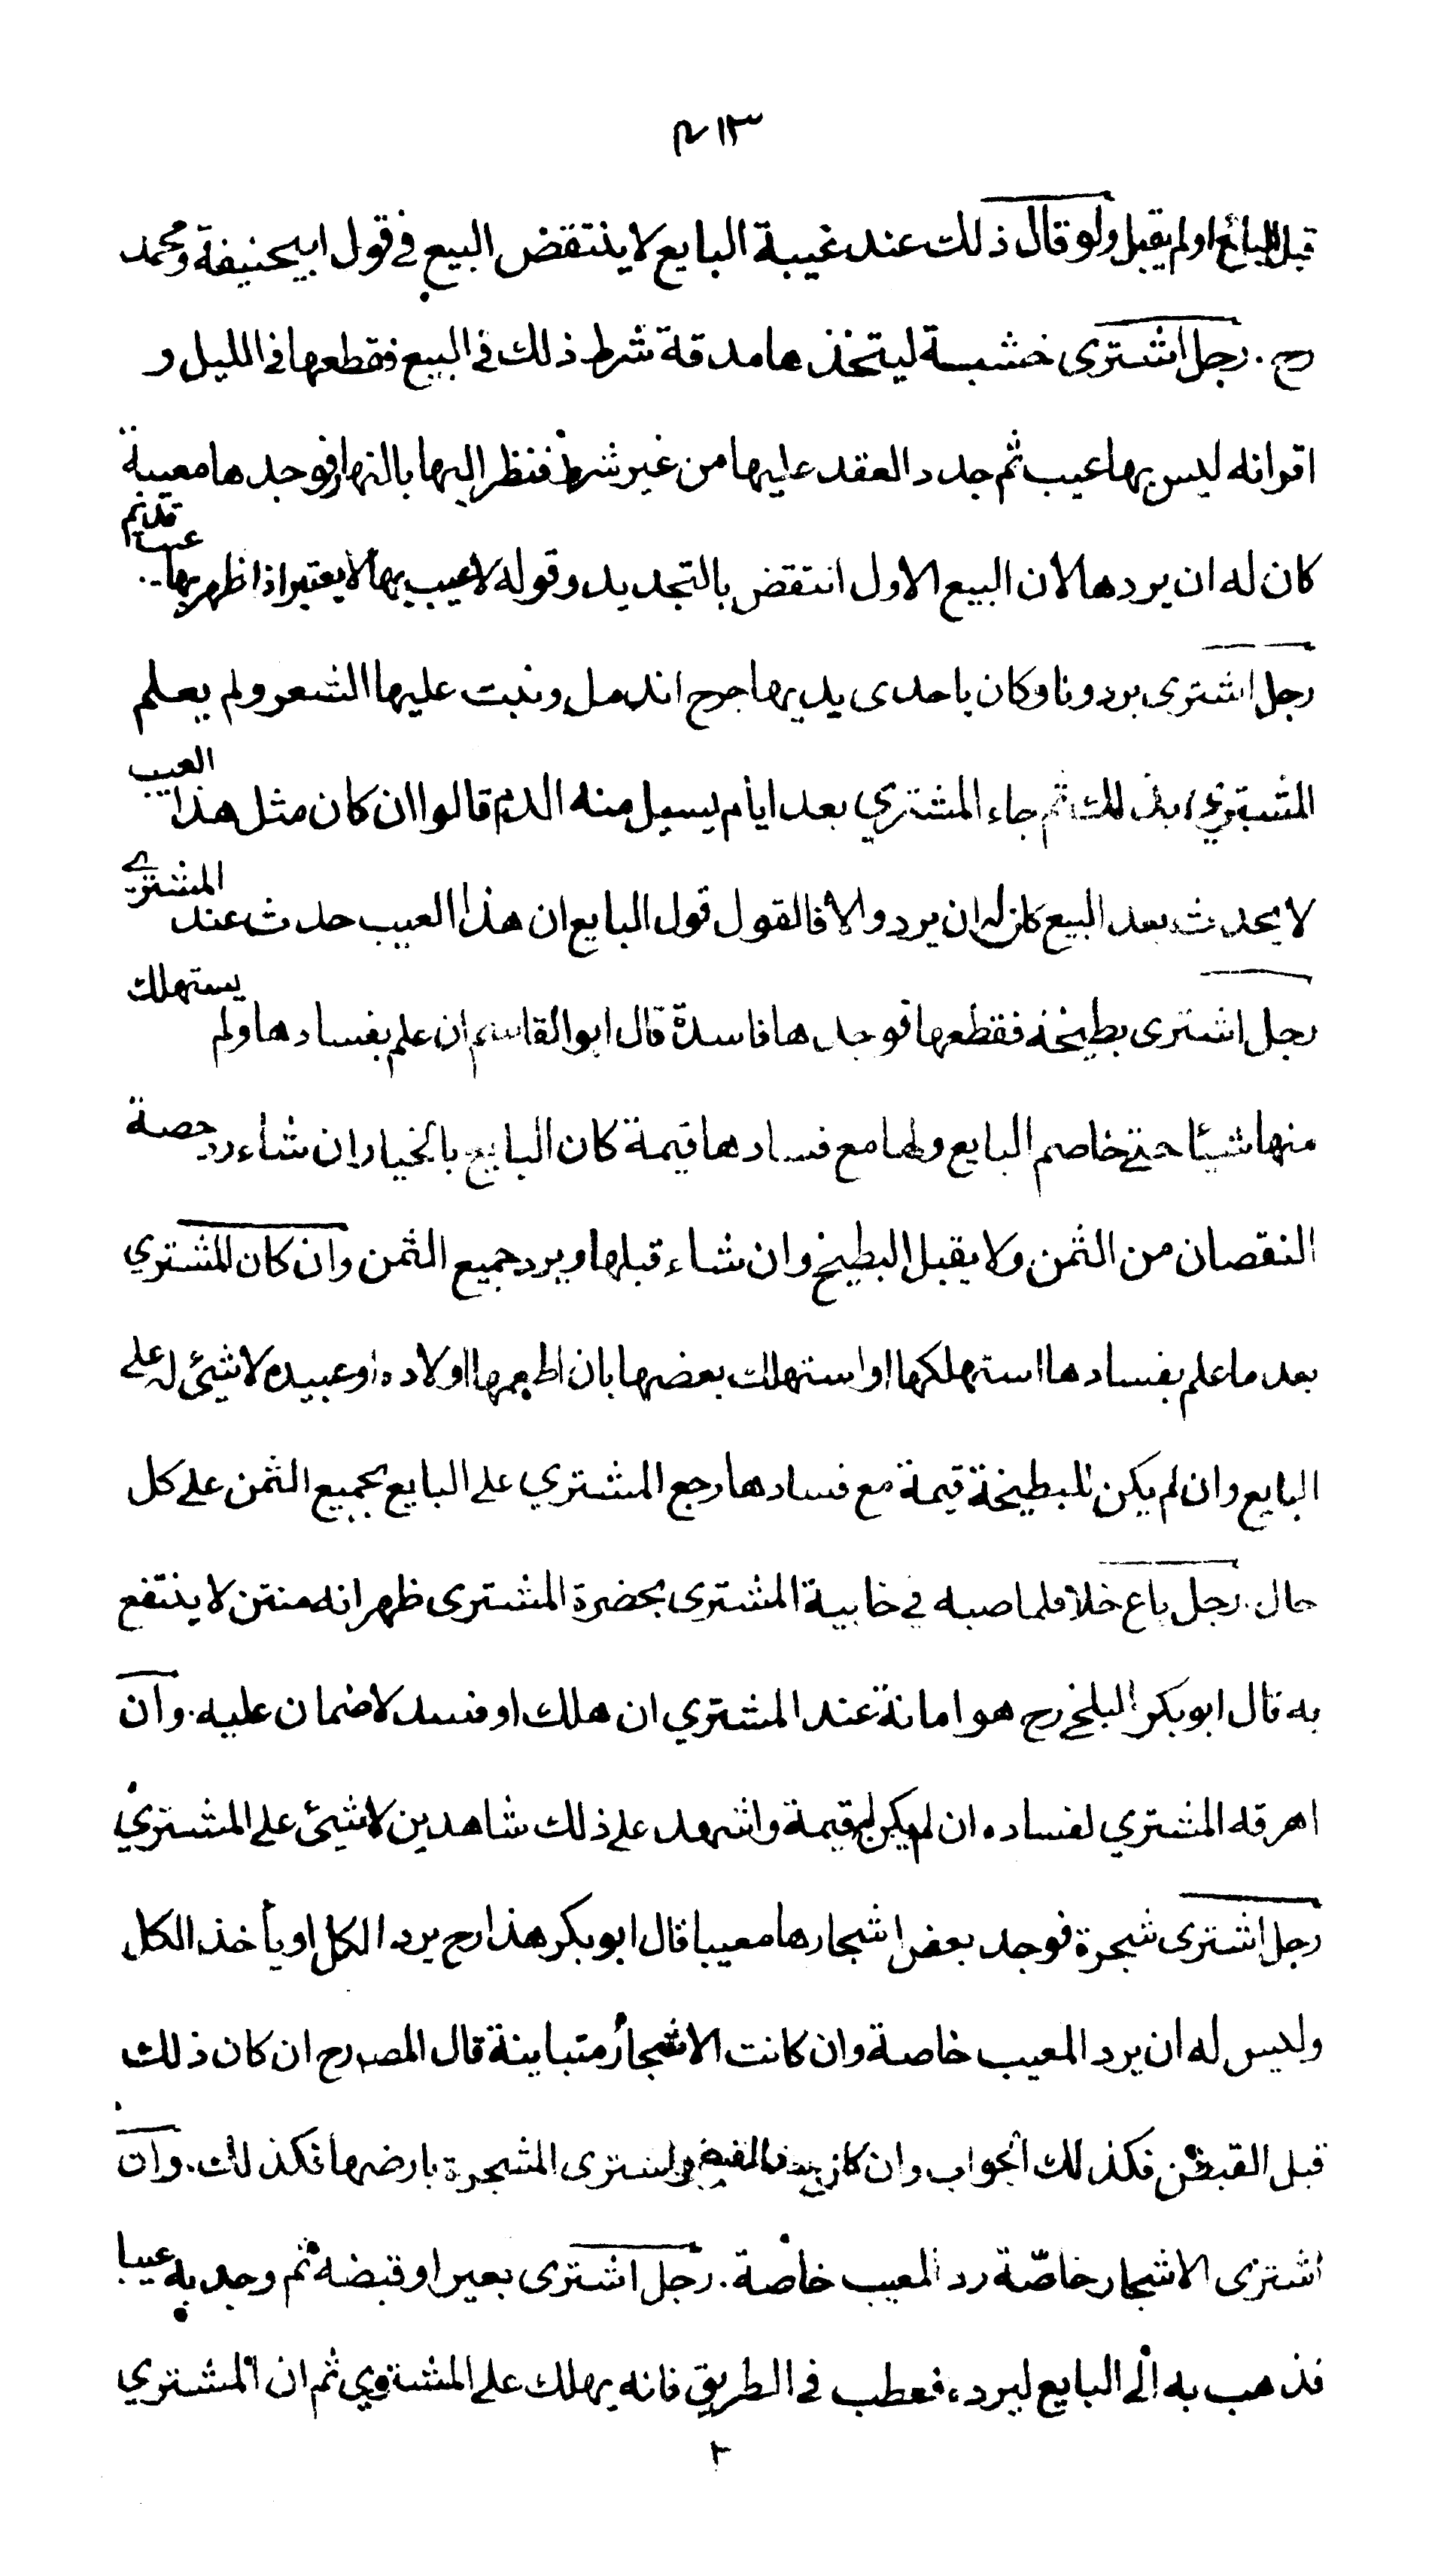 قبل البائع او لم يقبل ولو قال ذلك عند غيبة البايع لا ينتقض البيع في قول ابيحنيفة ومحمد
رح . رجل اشترى خشبة ليتخذها مدقة شرط ذلك في البيع فقطعها في الليل و
اقر انه ليس بها عيب ثم جدد العقد عليها من غير شرط فنظر اليها بالنهار فوجدها معيبة
كان له ان يردها لان البيع الاول انتقض بالتجديد وقوله لا عيب بها لا يعتبر اذا ظهر بها عيب قديم
رجل اشترى بردونا وكان باحدى يديها جرح اندمل ونبت عليها الشعر ولم يعلم
المشتري بذلك ثم جاء المشتري بعد ايام يسيل منه الدم قالوا ان كان مثل هذا العيب
لا يحدث بعد البيع كان له ان يرد والا فالقول قول البايع ان هذا العيب حدث عند المشتري
رجل اشترى بطيخة فقطعها فوجدها فاسدة قال ابو القاسم ان علم بفسادها ولم يستهلك
منها شيئا حتى خاصم البايع ولها مع فسادها قيمة كان البايع بالخيار ان شاء رد حصة
النقصان من الثمن ولا يقبل البطيخ وان شاء قبلها ويرد جميع الثمن وان كان للمشتري
بعد ما علم بفسادها استهلكها او استهلك بعضها بان اطعمها اولاده او عبيده لا شيئ له على
البايع وان لم يكن للبطيخة قيمة مع فسادها رجع المشتري على البايع بجميع الثمن على كل
حال . رجل باع خلا فلما صبه في خابية المشترى بحضرة المشترى ظهر انه منتن لا ينتفع
به قال ابو بكر البلخي رح هو امانة عند المشتري ان هلك او فسد لا ضمان عليه . وان
اهرقه المشتري لفساده ان لم يكن له قيمة واشهد على ذلك شاهدين لا شيئ على المشتري
رجل اشترى شجرة فوجد بعض اشجارها معيبا قال ابو بكر هذا رح يرد الكل او يأخذ الكل
وليس له ان يرد المعيب خاصة وان كانت الاشجار متباينة قال المصـ رح ان كان ذلك
قبل القبض فكذلك الجواب وان كان بعد القبض واشترى الشجرة بارضها فكذلك . وان
اشترى الاشجار خاصّة رد المعيب خاصة . رجل اشترى بعيرا وقبضه ثم وجد به عيبا
فذهب به الى البايع ليرده فعطب في الطريق فانه يهلك على المشتري ثم ان المشتري